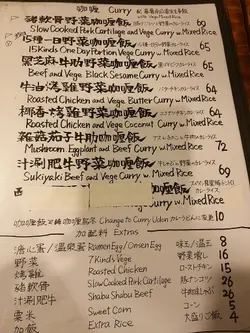 咖喱 Curry
豬軟骨野菜咖喱飯 69
Slow Cooked Pork Cartilage and Veggi Curry w. Mixed Rice
15種一日野菜咖喱飯 65
15 Kinds One Day Portion Vegi Curry w. Mixed Rice
黑芝麻牛肋野菜咖喱飯
Beef and Vegi Black Sesame Curry w. Mixed Rice
牛油燒雞野菜咖喱飯 64
Roasted Chicken and Vegi Butter Curry w. Mixed Rice
椰香燒雞野菜咖喱飯 64
Roasted Chicken and Vegi Coconut Curry w. Mixed Rice
雜菇茄子牛肋咖喱飯 72
Mushroom, Eggplant and Beef Curry w. Mixed Rice
汁涮肥牛野菜咖喱飯 69
Sukiyaki Beef and Vegi Curry w. Mixed Rice
西 咖喱飯
Curry w. Mixed Rice
Change to Curry Udon 10
加配料 Extras
溏心蛋/温泉蛋 Ramen Egg/Onsen Egg 味玉/温玉 8
野菜 7 Kinds Vegi 野菜増し 16
燒雞 Roasted Chicken ローストチキン 15
豬軟骨 Slow Cooked Pork Cartilage 豚ナンコツ 26
汁涮肥牛 Shabu Shabu Beef 26
粟米 Sweet Corn コーン 5
加飯 Extra Rice 大盛りご飯 4